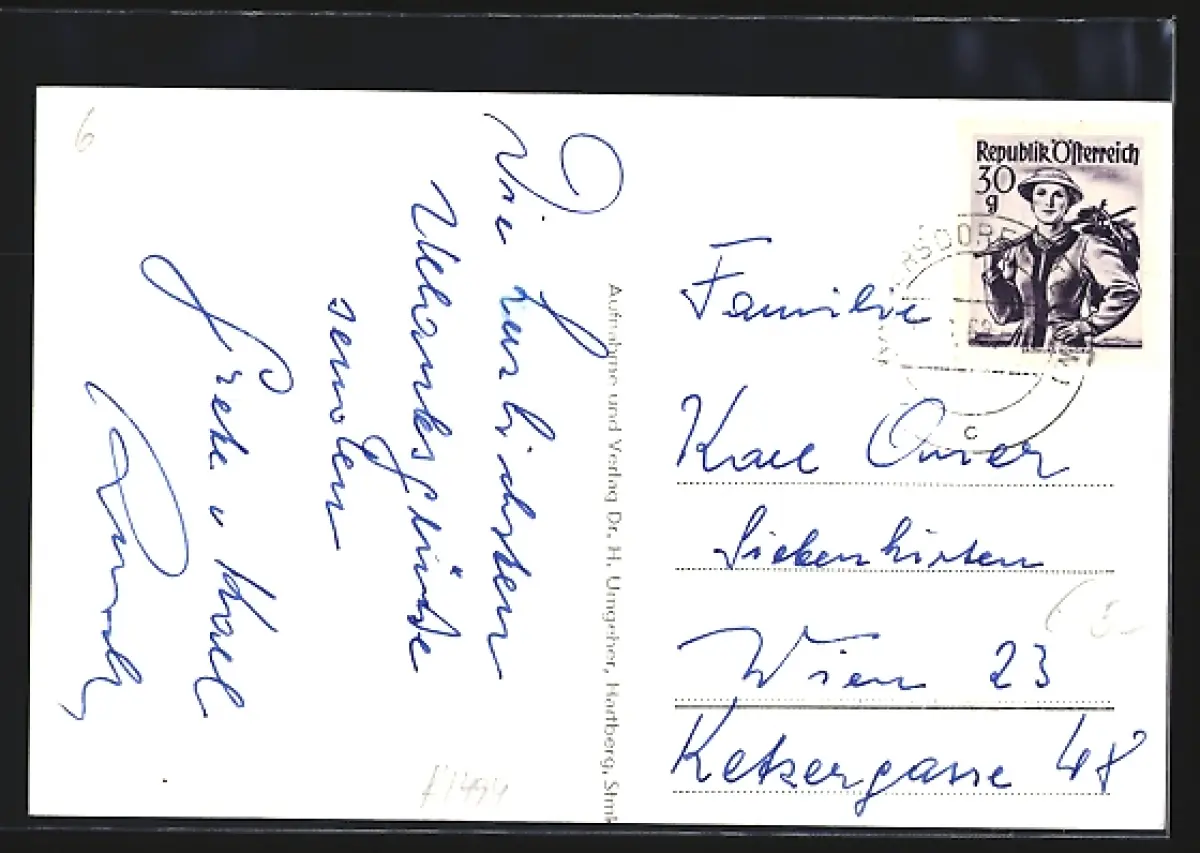 6
Die herzlichsten
Urlaubsgrüße
senden
Grete u Karl
Aufnahme und Verlag Dr. H. Umgeher, Hartberg, Stmk
Republik Österreich
30
g
ERSDORF
c
Familie
Karl
Siebenhirten
Wien 23
Ketzergasse 48